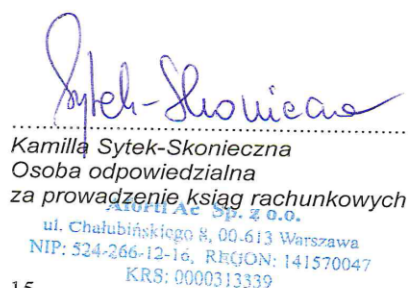 Sytek-Skonieczna
Kamilla Sytek-Skonieczna
Osoba odpowiedzialna
za prowadzenie ksiąg rachunkowych
Aforti Ac Sp. z o.o.
ul. Chałubińskiego 8, 00-613 Warszawa
NIP: 524-266-12-16, REGON: 141570047
KRS: 0000313339
15